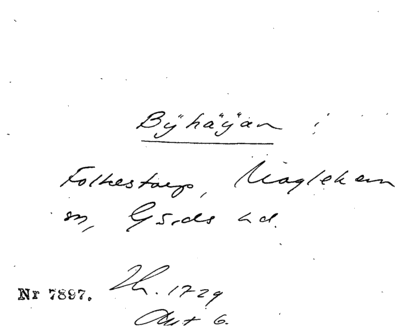 Byhäjan :
Folkestorp, Maglehem
sn, Gärds hd.
Nr 7897. Th. 1729
Akt 6.